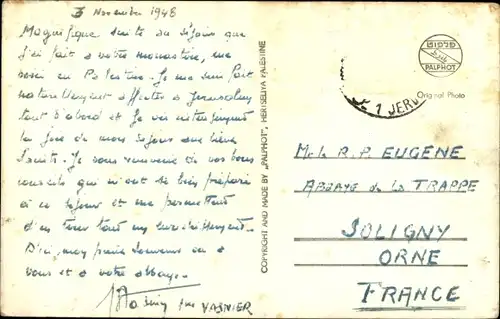 3 Novembre 1948
Magnifique suite au séjour que
j'ai fait à votre monastère, me
voici en Palestine. Je me suis fait
naturellement affecter à Jerusalem
tout d'abord et je vis
la joie de mon séjour aux lieux
Saints. Je me souviens de vos bons
conseils qui m'ont si bien préparé
à ce séjour et me permettent
d'en tirer tout
D'ici, mon
vous et à votre abbaye.
VASNIER
COPYRIGHT AND MADE BY „PALPHOT", HERTSELIYA PALESTINE
פלפוט
PALPHOT
Original Photo
1 JERU
R. P. EUGENE
ABBAYE de LA TRAPPE
SOLIGNY
ORNE
FRANCE